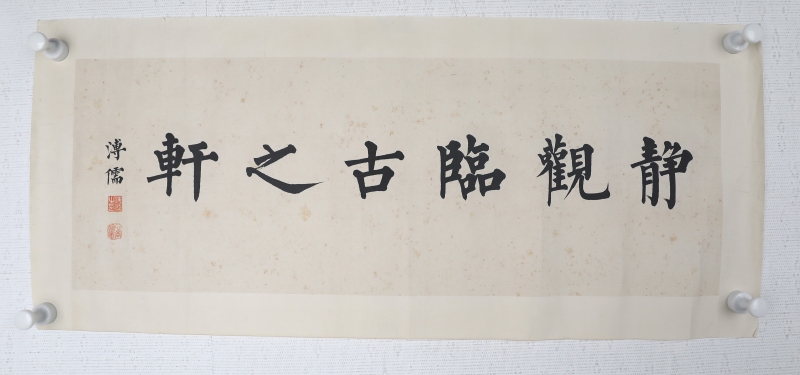 静觀臨古之軒
溥儒